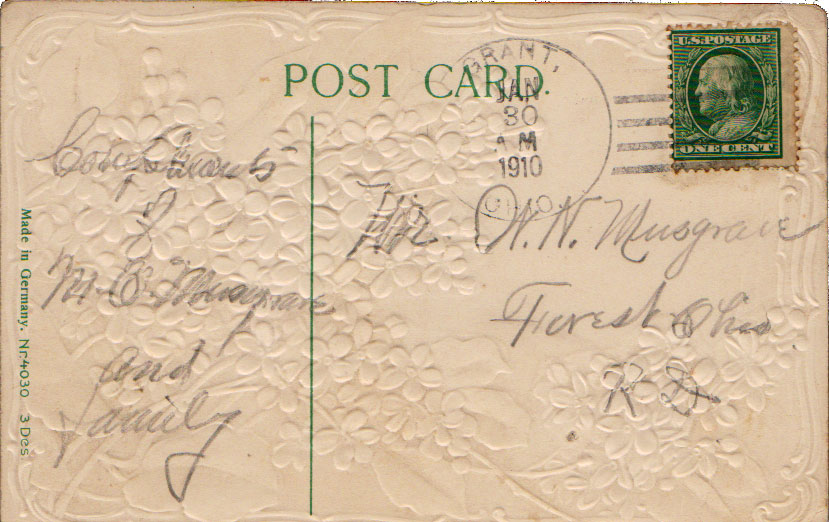 POST CARD.
GRANT,
JAN
30
A M
1910
OHIO.
U.S. POSTAGE
ONE CENT
Compliments
of
M. C. Musgrave
and
Family
Mr. W. N. Musgrave
Forest Ohio
R D
Made in Germany. Nr. 4030 3 Des.